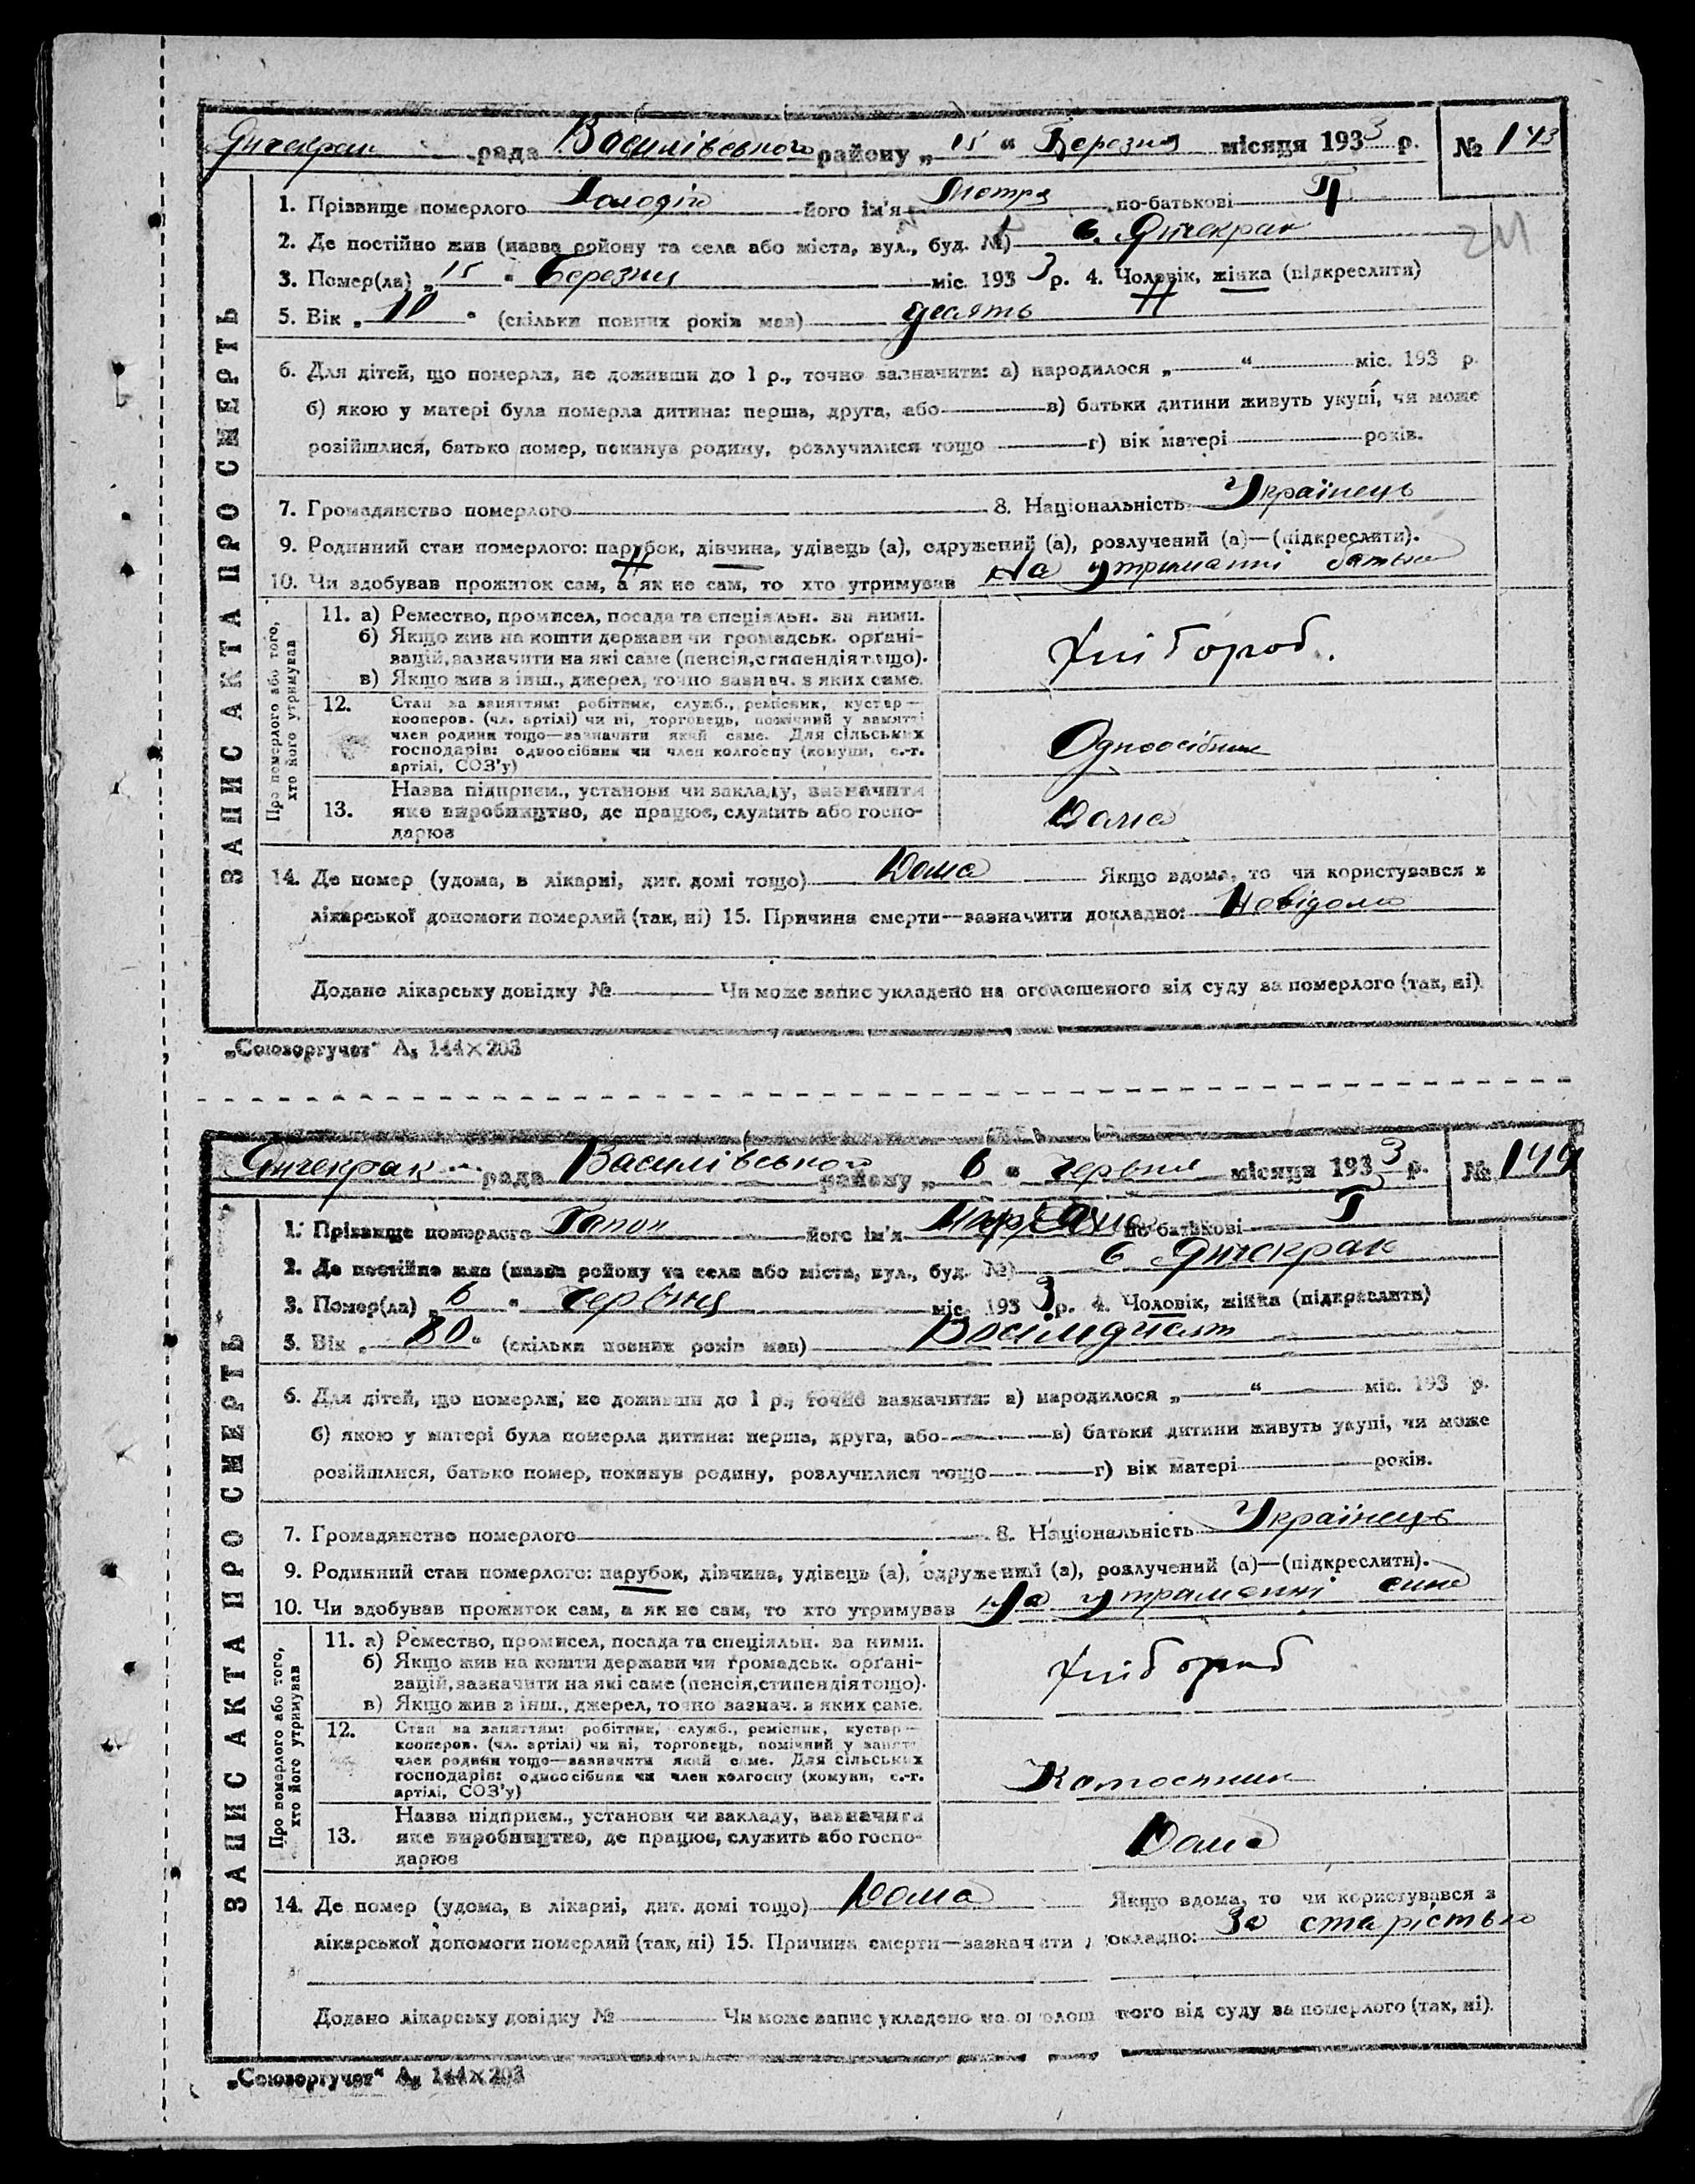 Янчекрак рада Василівського району „ 15 “ Березня місяця 1933 р. № 143
1. Прізвище померлого його ім'я по-батькові П
2. Де постійно жив (назва району та села або міста, вул., буд. №) с. Янчекрак
3. Помер(ла) „ 15 “ Березня міс. 1933 р. 4. Чоловік, жінка (підкреслити)
5. Вік „ 10 “ (скільки повних років мав) десять
6. Для дітей, що померли, не доживши до 1 р., точно зазначити: а) народилося „ “ міс. 193 р.
б) якою у матері була померла дитина: перша, друга, або в) батьки дитини живуть укупі, чи може
розійшлися, батько помер, покинув родину, розлучилися тощо г) вік матері років.
7. Громадянство померлого 8. Національність Українець
9. Родинний стан померлого: парубок, дівчина, удівець (а), одружений (а), розлучений (а)—(підкреслити).
10. Чи здобував прожиток сам, а як не сам, то хто утримував На утриманні батька
ЗАПИС АКТА ПРО СМЕРТЬ
Про померлого або того, хто його утримував
11. а) Ремество, промисел, посада та спеціяльн. за ними.
б) Якщо жив на кошти держави чи громадськ. орґані-
зацій, зазначити на які саме (пенсія, стипендія тощо).
в) Якщо жив з інш., джерел, точно зазнач. з яких саме.
Хлібороб.
12. Стан за заняттям: робітник, служб., ремісник, кустар—
кооперов. (чл. артілі) чи ні, торговець, помічний у занятті
член родини тощо—зазначити який саме. Для сільських
господарів: одноосібник чи член колгоспу (комуни, с.-г.
артілі, СОЗ'у)
Одноосібник
13. Назва підприєм., установи чи закладу, зазначити
яке виробництво, де працює, служить або госпо-
дарює
Дома
14. Де помер (удома, в лікарні, дит. домі тощо) Дома Якщо вдома, то чи користувався з
лікарської допомоги померлий (так, ні) 15. Причина смерти—зазначити докладно: Невідомо
Додано лікарську довідку № Чи може запис укладено на оголошеного від суду за померлого (так, ні).
„Союзоргучет“ А5 144×203
Янчекрак рада Василівського району „ 6 “ Червня місяця 1933 р. № 144
1. Прізвище померлого Гапон його ім'я по-батькові Т
2. Де постійно жив (назва району та села або міста, вул., буд. №) с Янчекрак
3. Помер(ла) „ 6 “ Червня міс. 1933 р. 4. Чоловік, жінка (підкреслити)
5. Вік „ 80 “ (скільки повних років мав) Восімдисят
6. Для дітей, що померли, не доживши до 1 р., точно зазначити: а) народилося „ “ міс. 193 р.
б) якою у матері була померла дитина: перша, друга, або в) батьки дитини живуть укупі, чи може
розійшлися, батько помер, покинув родину, розлучилися тощо г) вік матері років.
7. Громадянство померлого 8. Національність Українець
9. Родинний стан померлого: парубок, дівчина, удівець (а), одружений (а), розлучений (а)—(підкреслити).
10. Чи здобував прожиток сам, а як не сам, то хто утримував На утриманні сина
ЗАПИС АКТА ПРО СМЕРТЬ
Про померлого або того, хто його утримував
11. а) Ремество, промисел, посада та спеціяльн. за ними.
б) Якщо жив на кошти держави чи громадськ. орґані-
зацій, зазначити на які саме (пенсія, стипендія тощо).
в) Якщо жив з інш., джерел, точно зазнач. з яких саме.
Хлібороб
12. Стан за заняттям: робітник, служб., ремісник, кустар—
кооперов. (чл. артілі) чи ні, торговець, помічний у занятті
член родини тощо—зазначити який саме. Для сільських
господарів: одноосібник чи член колгоспу (комуни, с.-г.
артілі, СОЗ'у)
13. Назва підприєм., установи чи закладу, зазначити
яке виробництво, де працює, служить або госпо-
дарює
Дома
14. Де помер (удома, в лікарні, дит. домі тощо) Дома Якщо вдома, то чи користувався з
лікарської допомоги померлий (так, ні) 15. Причина смерти—зазначити докладно: За старістью
Додано лікарську довідку № Чи може запис укладено на оголош ного від суду за померлого (так, ні).
„Союзоргучет“ А5 144×203